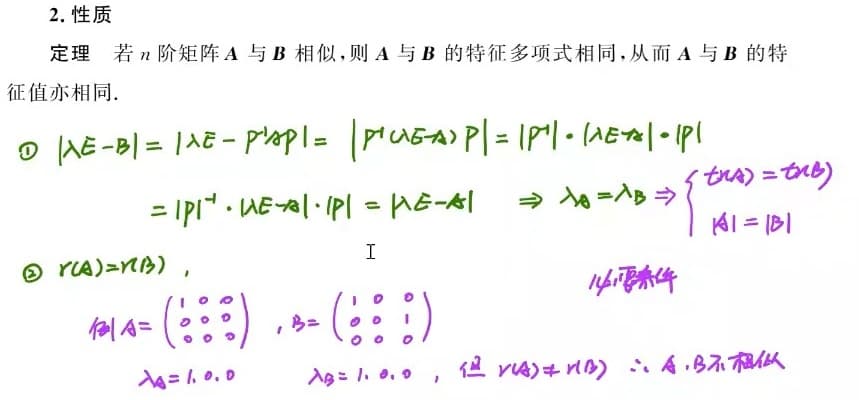 2. 性质
定理 若 n 阶矩阵 A 与 B 相似,则 A 与 B 的特征多项式相同,从而 A 与 B 的特
征值亦相同.
① |λE-B| = |λE-P⁻¹AP| = |P⁻¹(λE-A)P| = |P⁻¹|·|λE-A|·|P|
= |P|⁻¹·|λE-A|·|P| = |λE-A| ⇒ λA=λB ⇒ { tr(A)=tr(B)
|A|=|B|
② r(A)=r(B),
必要条件
例 A= (1 0 0
0 0 0
0 0 0) , B= (1 0 0
0 0 1
0 0 0)
λA=1.0.0 λB=1.0.0 , 但 r(A)≠r(B) ∴ A.B不相似